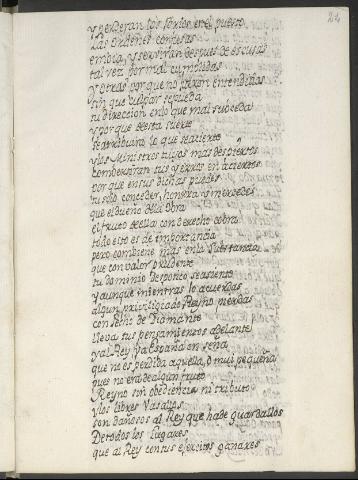 24
y perderan los soxios en el puerto
Las ordenes confusas
embia, y serviran despues de escusas
tal vez por mal cumplidas
y otras por que no fuxon entendidas
sin que culpar se pueda
tu direccion en lo que mal suceda
y por que desta suerte
se atribuira lo que se acierte
y los Ministros tuyos mas despiertos
compraran tus yerros en aciertos
por que en sus dichas puedes
tu solo conceder, honrra o mercedes
que el dueño de la obra
el fruto de ella con derecho cobra
todo esto es de importancia
pero combiene mas en la substancia
que con valor prudente
tu dominio despotico se asiente
y aunque mientras lo acuerdas
algun privilegiado Reyno pierdas
con pecho de Diamante
lleva tus pensamientos adelante
y al Rey y a España enseña
que no es perdida aquella, o mui pequeña
pues no era de algun fruto
Reyno sin obediencia ni tributo
y los libres Vasallos
son dañosos al Rey que ha de guardallos
De todos los Lugares
que al Rey con tus exercitos ganares